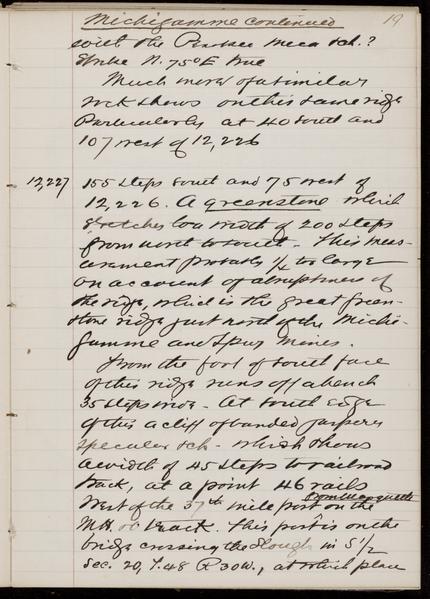 Michigamme continued
19
with the Pewabic mica sch.?
Strike N. 75° E true
Much more of a similar
rock shows on this same ridge
Particularly at 40 south and
107 west of 12,226
12,227 155 steps south and 75 west of
12,226. A greenstone which
stretches to a width of 200 steps
from north to south. This meas-
urement probably 1/4 too large
on account of abruptness of
the ridge, which is the great green-
stone ridge just north of the Michi-
gamme and Spurr Mines.
From the foot of south face
of this ridge runs off a bench
35 steps wide. At south edge
of this a cliff of banded jaspery
specular sch. which shows
a width of 45 steps to railroad
track, at a point 46 rails
from Marquette
west of the 37th mile post on the
M.H. & O. track. This post is on the
bridge crossing the slough in S 1/2
Sec. 20, T. 48 R 30 W., at which place